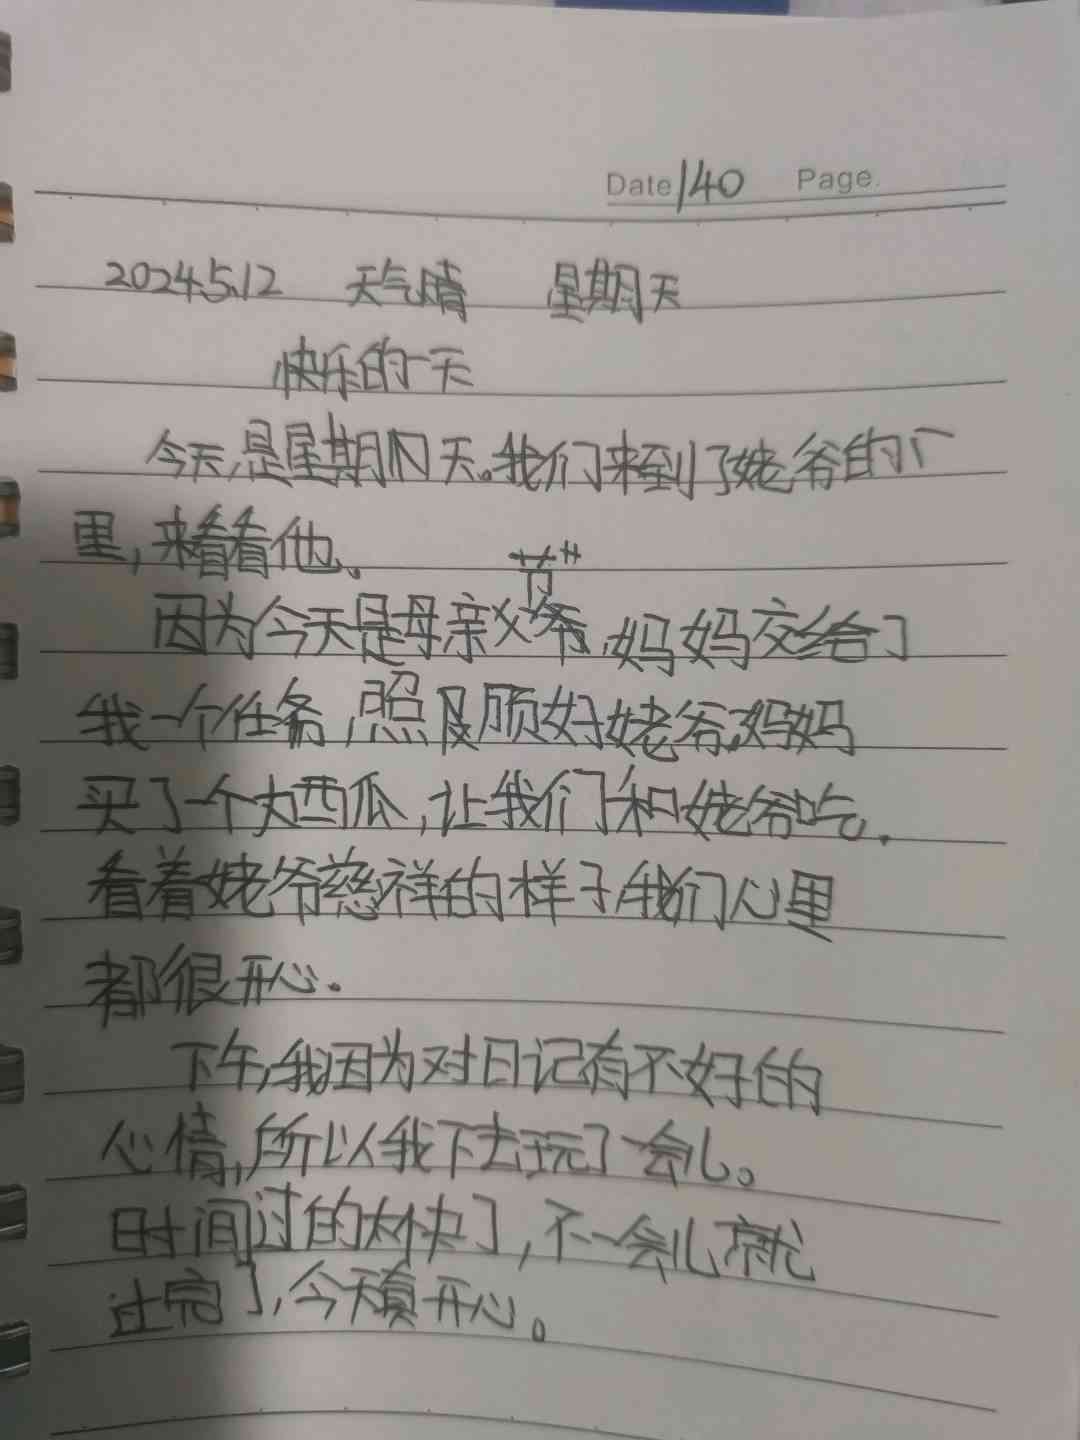 Date 140 Page.
2024.5.12 天气晴 星期天
快乐的一天
今天是星期天。我们来到了姥爷的厂
里,来看看他。
因为今天是母亲节,妈妈交给了
我一个任务,照顾好姥爷,妈妈
买了一个大西瓜,让我们和姥爷吃.
看着姥爷慈祥的样子,我们心里
都很开心.
下午,我因为对日记有不好的
心情,所以我下去玩了一会儿。
时间过的太快了,不一会儿就
过完了,今天真开心。